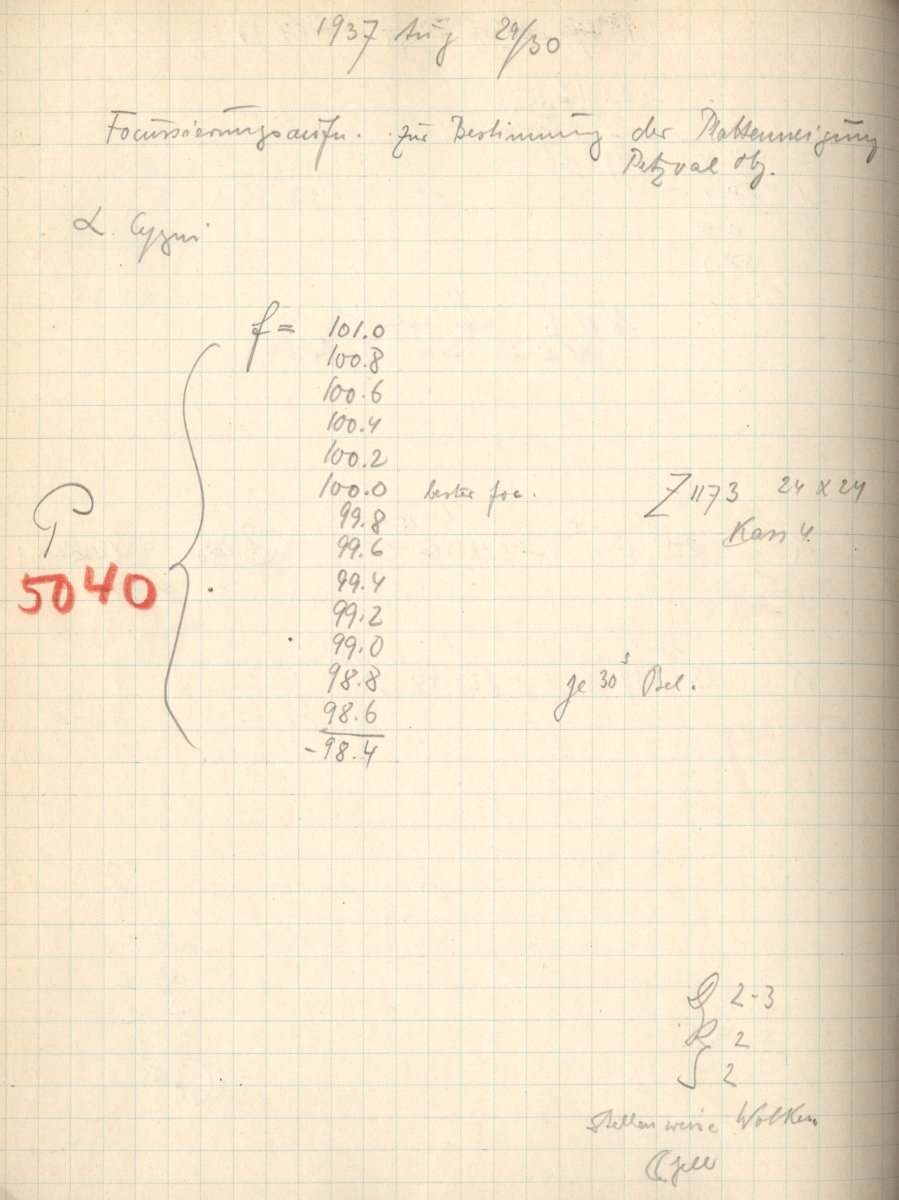 1937 Aug 29/30
Focussierungsaufn. zur Bestimmung der Plattenneigung
Petzval Obj.
α Cygni
f = 101.0
100.8
100.6
100.4
100.2
100.0 bester foc. Z 1173 24 x 24
99.8 Kass 4.
99.6
P
5040
99.4
99.2
99.0
98.8 je 30s Bel.
98.6
-98.4
2-3
R 2
S 2
stellenweise Wolken